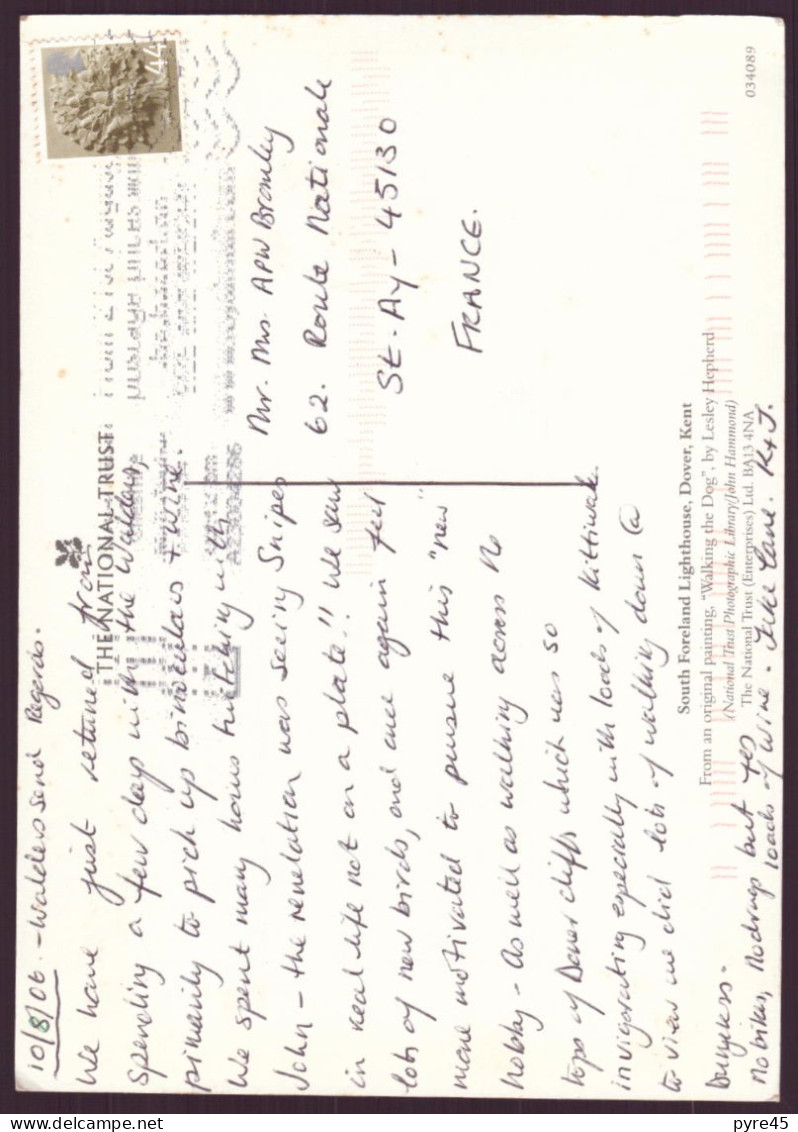 10/8/06. - Walders send Regards.
We have just returned from
spending a few days with the Walders,
primarily to pick up binoculars + wine.
We spent many hours twitching with
John - the revelation was seeing Snipes
in real life not on a plate!! We saw
lots of new birds, and once again feel
more motivated to pursue this "new"
hobby - As well as walking across
tops of Dover cliffs which was so
invigorating especially with loads of kittiwak
to view we did lots of walking down @
Dungeness.
No bikes, but yes
loads of wine. K & J.
THE NATIONAL TRUST
44
Mr. Mrs APW Bromley
62. Route Nationale
St. Ay - 45130
FRANCE.
South Foreland Lighthouse, Dover, Kent
From an original painting, "Walking the Dog", by Lesley Hepherd
(National Trust Photographic Library/John Hammond)
The National Trust (Enterprises) Ltd. BA13 4NA
034089
pyre45